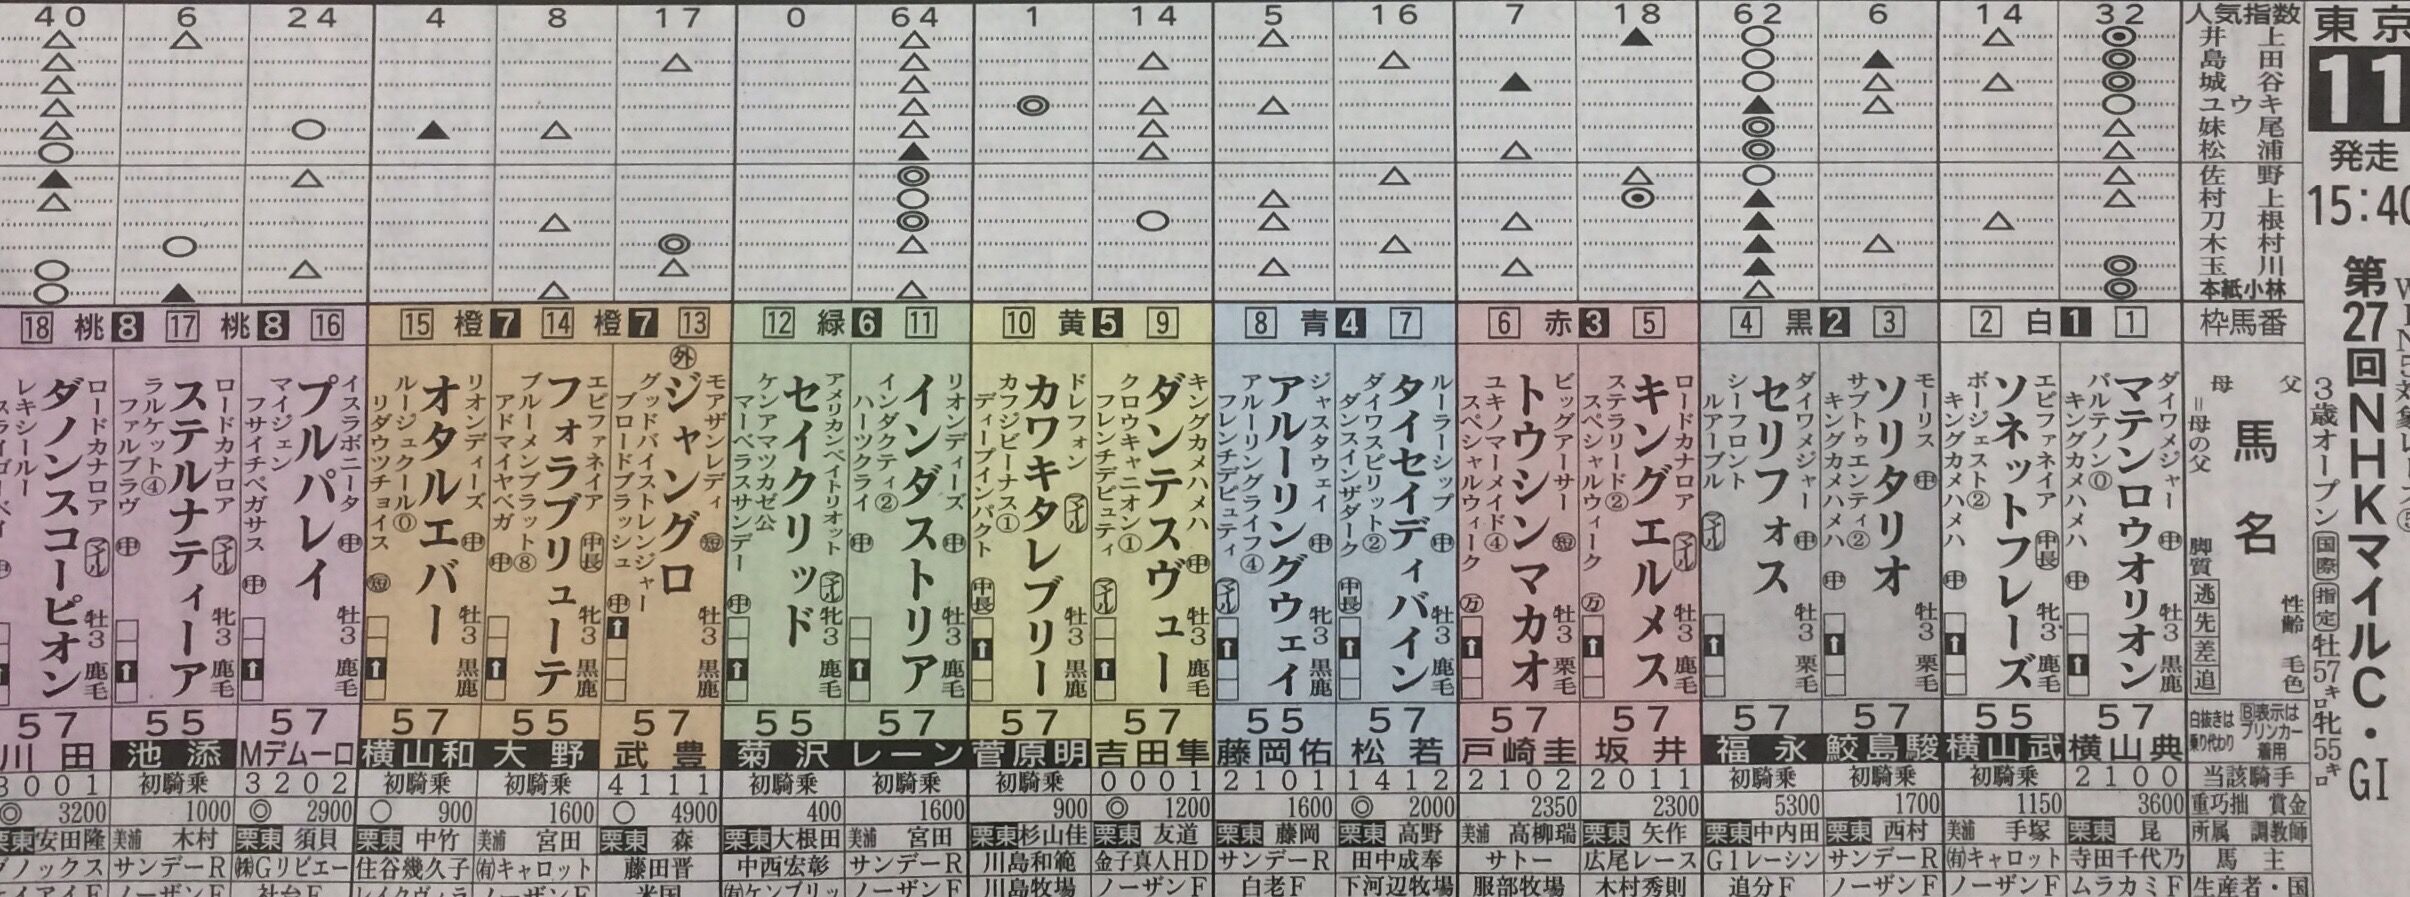 東京
11
発走
15:40
第27回NHKマイルC・GI
3歳オープン 国際 指定 牡57キロ牝55キロ
人気指数
井上
島田
城谷
ユウキ
妹尾
松浦
佐野
村上
刀根
木村
玉川
本紙小林
枠馬番
父
母
=母の父
馬名
性齢 毛色
脚質 逃 先 差 追
白抜きは乗り代わり
Ⓑ表示はブリンカー着用
当該騎手
重巧拙 賞金
所属 調教師
馬主
生産者・国
32 14 6 62 18 7 16 5 14 1 64 0 17 8 4 24 6 40
白1 1
ダイワメジャー
マテンロウオリオン
パルテノン⓪
キングカメハメハ
牡3 黒鹿
57
横山典
2100
3600
栗東 昆
寺田千代乃
ムラカミF
2
エピファネイア 中長
ソネットフレーズ
ボージェスト②
キングカメハメハ
牝3 鹿毛
55
横山武
初騎乗
1150
美浦 手塚
㈲キャロット
ノーザンF
黒2 3
モーリス
ソリタリオ
サブトゥエンティ②
キングカメハメハ
牡3 青鹿
57
鮫島駿
初騎乗
1700
栗東 西村
サンデーR
ノーザンF
4
ダイワメジャー
セリフォス
シーフロント
ルアーブル マイル
牡3 栗毛
57
福永
初騎乗
5300
栗東 中内田
G1レーシン
追分F
赤3 5
ロードカナロア マイル
キングエルメス
ステラリード②
スペシャルウィーク
牡3 鹿毛
57
坂井
2011
2300
栗東 矢作
広尾レース
木村秀則
6
ビッグアーサー
トウシンマカオ
ユキノマーメイド④
スペシャルウィーク
牡3 栗毛
57
戸崎圭
2102
2350
美浦 高柳瑞
サトー
服部牧場
青4 7
ルーラーシップ
タイセイディバイン
ダイワスピリット②
ダンスインザダーク 中長
牡3 鹿毛
57
松若
1412
◎ 2000
栗東 高野
田中成奉
下河辺牧場
8
ジャスタウェイ
アルーリングウェイ
アルーリングライフ④
フレンチデピュティ マイル
牝3 黒鹿
55
藤岡佑
2101
1600
栗東 藤岡
サンデーR
白老F
黄5 9
キングカメハメハ
ダンテスヴュー
クロウキャニオン①
フレンチデピュティ マイル
牡3 黒鹿
57
吉田隼
0001
◎ 1200
栗東 友道
金子真人HD
ノーザンF
10
ドレフォン マイル
カワキタレブリー
カフジビーナス①
ディープインパクト 中長
牡3 黒鹿
57
菅原明
初騎乗
900
栗東 杉山佳
川島和範
川島牧場
緑6 11
リオンディーズ
インダストリア
インダクティ②
ハーツクライ
牡3 鹿毛
57
レーン
初騎乗
1600
美浦 宮田
サンデーR
ノーザンF
12
アメリカンペイトリオット マイル
セイクリッド
ケンアマツカゼ公
マーベラスサンデー
牝3 鹿毛
55
菊沢
初騎乗
400
栗東 大根田
中西宏彰
㈲ケンブリッ
橙7 13
外
モアザンレディ
ジャングロ
グッドバイストレンジャー
ブロードブラッシュ
牡3 黒鹿
57
武豊
4111
○ 4900
栗東 森
藤田晋
米国
橙7 14
エピファネイア 中長
フォラブリューテ
ブルーメンブラット⑧
アドマイヤベガ
牝3 黒鹿
55
大野
初騎乗
1600
美浦 宮田
㈲キャロット
ノーザンF
15
リオンディーズ
オタルエバー
ルージュクール⓪
リダウツチョイス
牡3 黒鹿
57
横山和
初騎乗
○ 900
栗東 中竹
住谷幾久子
桃8 16
イスラボニータ
プルパレイ
マイジェン
フサイチペガサス
牡3 鹿毛
57
Mデムーロ
3202
◎ 2900
栗東 須貝
㈱Gリビエー
社台F
桃8 17
ロードカナロア マイル
ステルナティーア
ラルケット④
ファルブラヴ
牝3 鹿毛
55
池添
初騎乗
1000
美浦 木村
サンデーR
ノーザンF
18
ロードカナロア マイル
ダノンスコーピオン
レキシールー
スライゴーベイ
牡3 鹿毛
57
川田
3001
◎ 3200
栗東 安田隆
ダノックス
ケイアイF